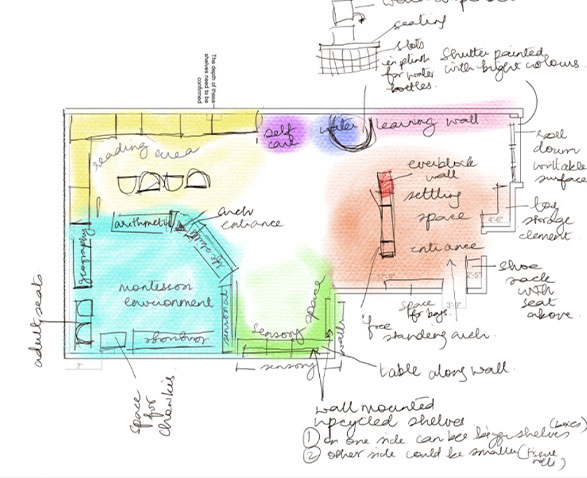 seating
slots
in plinth
for water
bottles.
Shutter painted
with bright colours.
The depth of these
shelves need to be
confirmed
self
care
water
learning wall
reading area
everblock
wall
settling
space
entrance
roll
down
writable
surface
bag
storage
element
arch
entrance
arithmetic
geography
montessori
environment
sensorial
sensory space
adult seats
space
for
chowkis
space
for bags
shoe
rack
with
seat
above.
free
standing arch.
wall
sensory
table along wall.
wall mounted
upcycled shelves
① on one side can be bigger shelves (boxes)
② other side could be smaller (tissue
rolls)